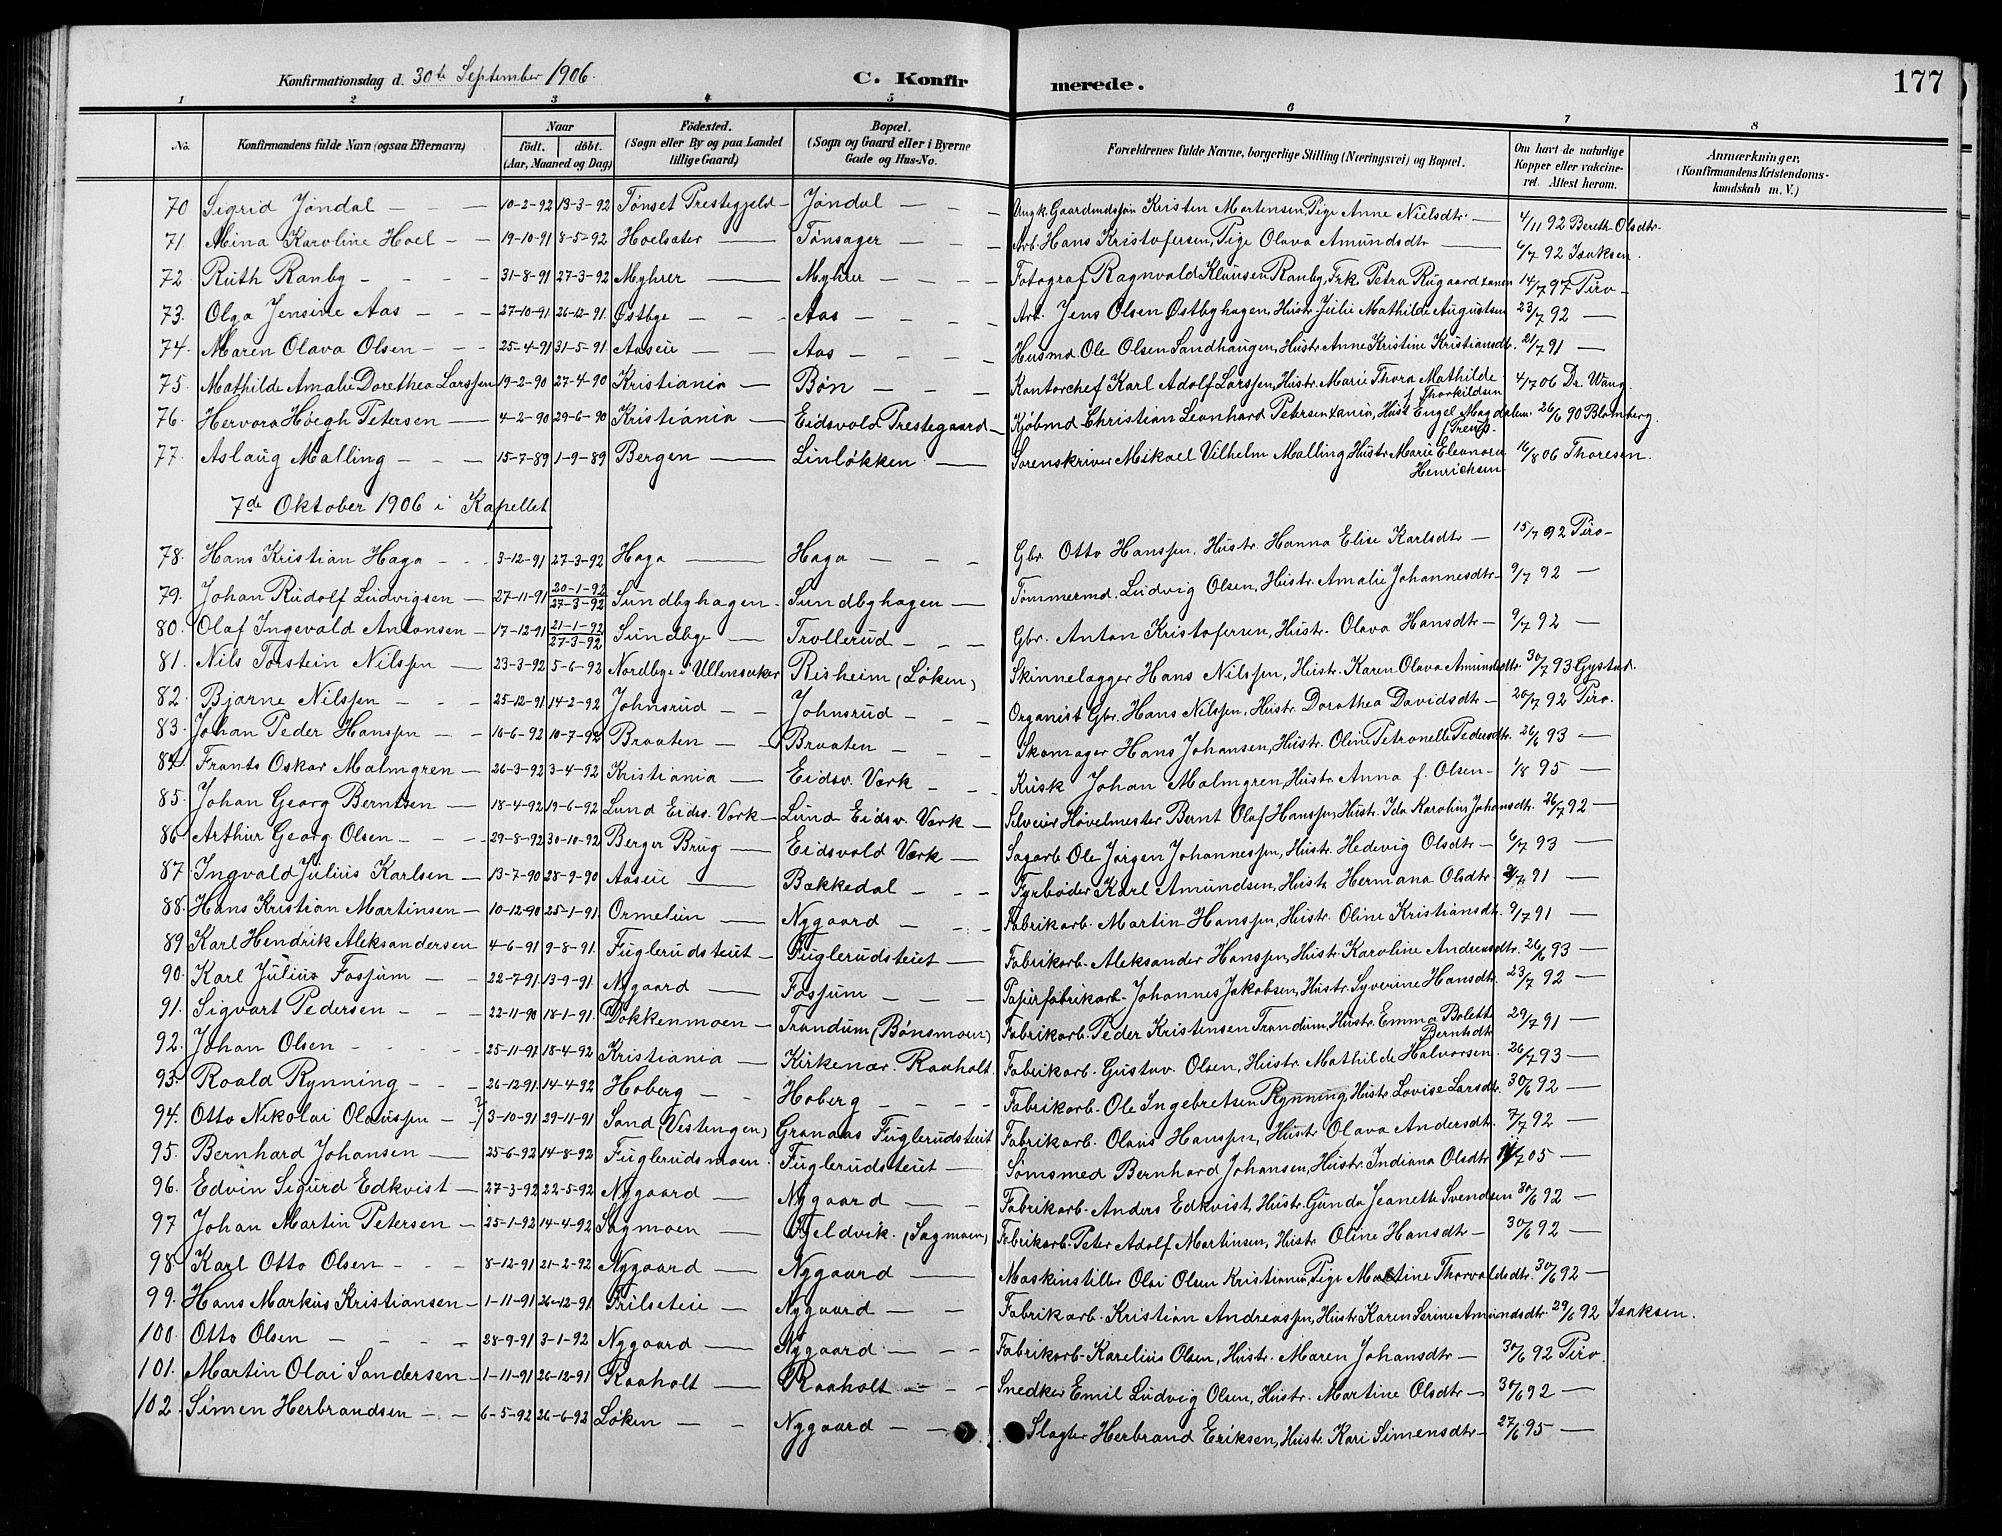 Konfirmationsdag d. 30te September 1906. C. Konfirmerede. 177
1 2 3 4 5 6 7 8
No. Konfirmandens fulde Navn (ogsaa Efternavn) Naar født. døbt. (Aar, Maaned og Dag) Fødested. (Sogn eller By og paa Landet tillige Gaard) Bopæl. (Sogn og Gaard eller i Byerne Gade og Hus-No. Forældrenes fulde Navne, borgerlige Stilling (Næringsvei) og Bopæl. Om havt de naturlige Kopper eller vakcineret. Attest herom. Anmærkninger, (Konfirmandens Kristendomskundskab m. V.)
70 Sigrid Jøndal 10-2-92 13-3-92 Tønset Prestegjeld Jøndal Ungk. Gaardmdssøn Kristen Mortensen, Pige Anne Nielsdtr. 4/11 92 Bereth Olsdtr.
71. Mina Karoline Hoel 19-10-91 8-5-92 Hoelsæter Tønsager Arb. Hans Kristofersen, Pige Olava Amundsdtr 6/7 92 Isaksen.
72 Ruth Ranby 31-8-91 27-3-92 Myhrer Myhrer Fotograf Ragnvald Klausen Ranby, Frk. Petra Rugaard 14/7 97 Piro
73. Olga Jensine Aas 27-10-91 26-12-91 Østbye Aas Arb. Jens Olsen Østbyhagen, Hustr. Julie Mathilde Augustsen 23/7 92
74. Maren Olava Olsen 25-4-91 31-5-91 Aaseie Aas Husmd. Ole Olsen Sandhaugen, Hustr. Anne Kristine Kristiansdtr. 2/7 91
75. Mathilde Amalie Dorethea Larssen 19-2-90 27-4-90 Kristiania Bøn Kontorchef Karl Adolf Larssen, Hustr. Marie Thora Mathilde f. Thorkildsen 4/7 06 Dr. Wang.
76. Hervora Høegh Petersen 4-2-90 29-6-90 Kristiania Eidsvold Prestegaard Kjøbmd. Christian Leonhard Petersen, Hust. Engel Magdalene 26/6 90 Blomberg.
77. Aslaug Malling 15-7-89 1-9-89 Bergen Linløkken Sorenskriver Mikael Vilhelm Malling, Hustr. Marie Eleonora Henrichsen 16/8 06 Thoresen.
7de Oktober 1906 i Kapellet
78. Hans Kristian Haga 3-12-91 27-3-92 Haga Haga Gbr. Otto Hanssen, Hustr. Hanna Elise Karlsdtr 15/7 92 Piro
79. Johan Rudolf Ludvigsen 27-11-91 20-1-92 27-3-92 Sundbyhagen Sundbyhagen Tømmermd. Ludvig Olsen, Hustr. Amalie Johannesdtr 9/7 92
80. Olaf Ingevald Antonsen 17-12-91 21-1-92 27-3-92 Sundbye Trollerud Gbr. Anton Kristofersen, Hustr. Olava Hansdtr 9/7 92
81. Nils Torstein Nilssen 23-3-92 5-6-92 Nordbye i Ullensaker Risheim (Løken) Skinnelægger Hans Nilssen, Hustr. Karen Olava Amundsdtr. 30/7 93 Gystad.
82. Bjarne Nilssen 25-12-91 14-2-92 Johnsrud Johnsrud Organist Gbr. Hans Nilssen, Hustr. Dorothea Davidsdtr 20/7 92 Piro.
83. Johan Peder Hanssen 16-6-92 10-7-92 Braaten Braaten Skomager Hans Johansen, Hustr. Oline Petronelle Pedersdtr. 26/6 93
84. Frants Oskar Malmgren 26-3-92 3-4-92 Kristiania Eidsv. Værk Kusk Johan Malmgren, Hustr. Anna f. Olsen 1/8 95
85. Johan Georg Berntsen 18-4-92 19-6-92 Lund Eidsv. Værk Lund Eidsv. Værk Høvelmester Bernt Olaf Hanssen, Hustr. Ida Karoline Johansdtr. 26/7 92
86. Arthur Georg Olsen 29-8-92 30-10-92 Berger Brug Eidsvold Værk Sagarb. Ole Jørgen Johannessen, Hustr. Hedevig Olsdtr 6/7 93
87. Ingvald Julius Karlsen 13-7-90 28-9-90 Aaseie Bækkedal Fyrbøder Karl Amundsen, Hustr. Hermana Olsdtr. 2/7 91
88. Hans Kristian Martinsen 10-12-90 25-1-91 Ormelien Nygaard Fabrikarb. Martin Hanssen, Hustr. Oline Kristiansdtr. 9/7 91
89 Karl Hendrik Aleksandersen 4-6-91 9-8-91 Fuglerudsteiet Fuglerudsteiet Fabrikarb. Aleksander Hanssen, Hustr. Karoline Andreasdtr. 26/6 93
90. Karl Julius Fossum 22-7-91 13-9-91 Nygaard Fossum Papirfabrikarb. Johannes Jakobsen, Hustr. Syverine Hansdtr. 23/7 92
91. Sigvart Pedersen 22-11-90 18-1-91. Dokkenmoen Trandum (Bønsmoen) Fabrikarb. Peder Kristensen Trandum, Hustr. Emma Bolette Berntsdtr 29/7 91
92. Johan Olsen 25-11-91 18-4-92 Kristiania Kirkenær. Raaholt. Fabrikarb. Gustav. Olsen, Hustr. Mathilde Halvorsen. 26/7 93
93. Roald Rynning 26-12-91 14-4-92 Hoberg Hoberg Fabrikarb. Ole Ingebretsen Rynning, Hustr. Lovise Larsdtr. 30/6 92
94. Otto Nikolai Olaussen 3-10-91 29-11-91 Sand (Vestengen) Granaas Fuglerudsteiet Fabrikarb. Olaus Hanssen, Hustr. Olava Andersdtr. 7/7 92
95. Bernhard Johansen 25-6-92 14-8-92 Fuglerudsmoen Fuglerudsteiet Sømsmed Bernhard Johansen, Hustr. Indiana Olsdtr 11/7 05
96. Edvin Sigurd Edkvist 27-3-92 22-5-92 Nygaard Nygaard Fabrikarb. Anders Edkvist, Hustr. Gunda Jeanette Svendsen 30/6 92
97 Johan Martin Petersen 25-1-92 14-4-92 Sagmoen Fjeldvik. (Sagmoen) Fabrikarb. Peter Adolf Martinsen, Hustr. Oline Hansdtr 30/6 92
98. Karl Otto Olsen 8-12-91 21-2-92 Nygaard Nygaard Maskinstiller Olai Olsen Kristiania, Pige Martine Thorvaldsdtr. 30/6 92
99. Hans Markus Kristiansen 1-11-91 26-12-91 Frilseteie Nygaard Fabrikarb. Kristian Andreassen, Hustr. Karen Serine Amundsdtr. 29/6 92 Isaksen.
100. Otto Olsen 28-9-91 3-1-92 Nygaard Nygaard Fabrikarb. Karelius Olsen, Hustr. Maren Johansdtr 30/6 92 Piro.
101. Martin Olai Sandersen 1-11-91 26-12-91 Raaholt Raaholt Snedker Emil Ludvig Olsen, Hustr. Martine Olsdtr 30/6 92
102. Simen Herbrandsen 6-5-92 26-6-92 Løken Nygaard Slagter Herbrand Eriksen, Hustr. Kari Simensdtr 27/6 95